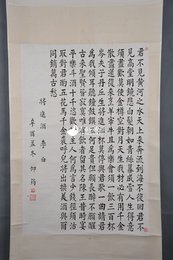 君不見黃河之水天上來奔流到海不復回君不
見高堂明鏡悲白髮朝如青絲暮成雪人生得意
須盡歡莫使金樽空對月天生我材必有用千金
散盡還復來烹羊宰牛且為樂會須一飲三百杯
岑夫子丹丘生將進酒杯莫停與君歌一曲請君
為我傾耳聽鐘鼓饌玉何足貴但願長醉不願醒
古來聖賢皆寂寞惟有飲者留其名陳王昔時宴
平樂斗酒十千恣歡謔主人何為言少錢徑須沽
取對君酌五花馬千金裘呼兒將出換美酒與爾
同銷萬古愁
將進酒 李白
辛酉孟冬